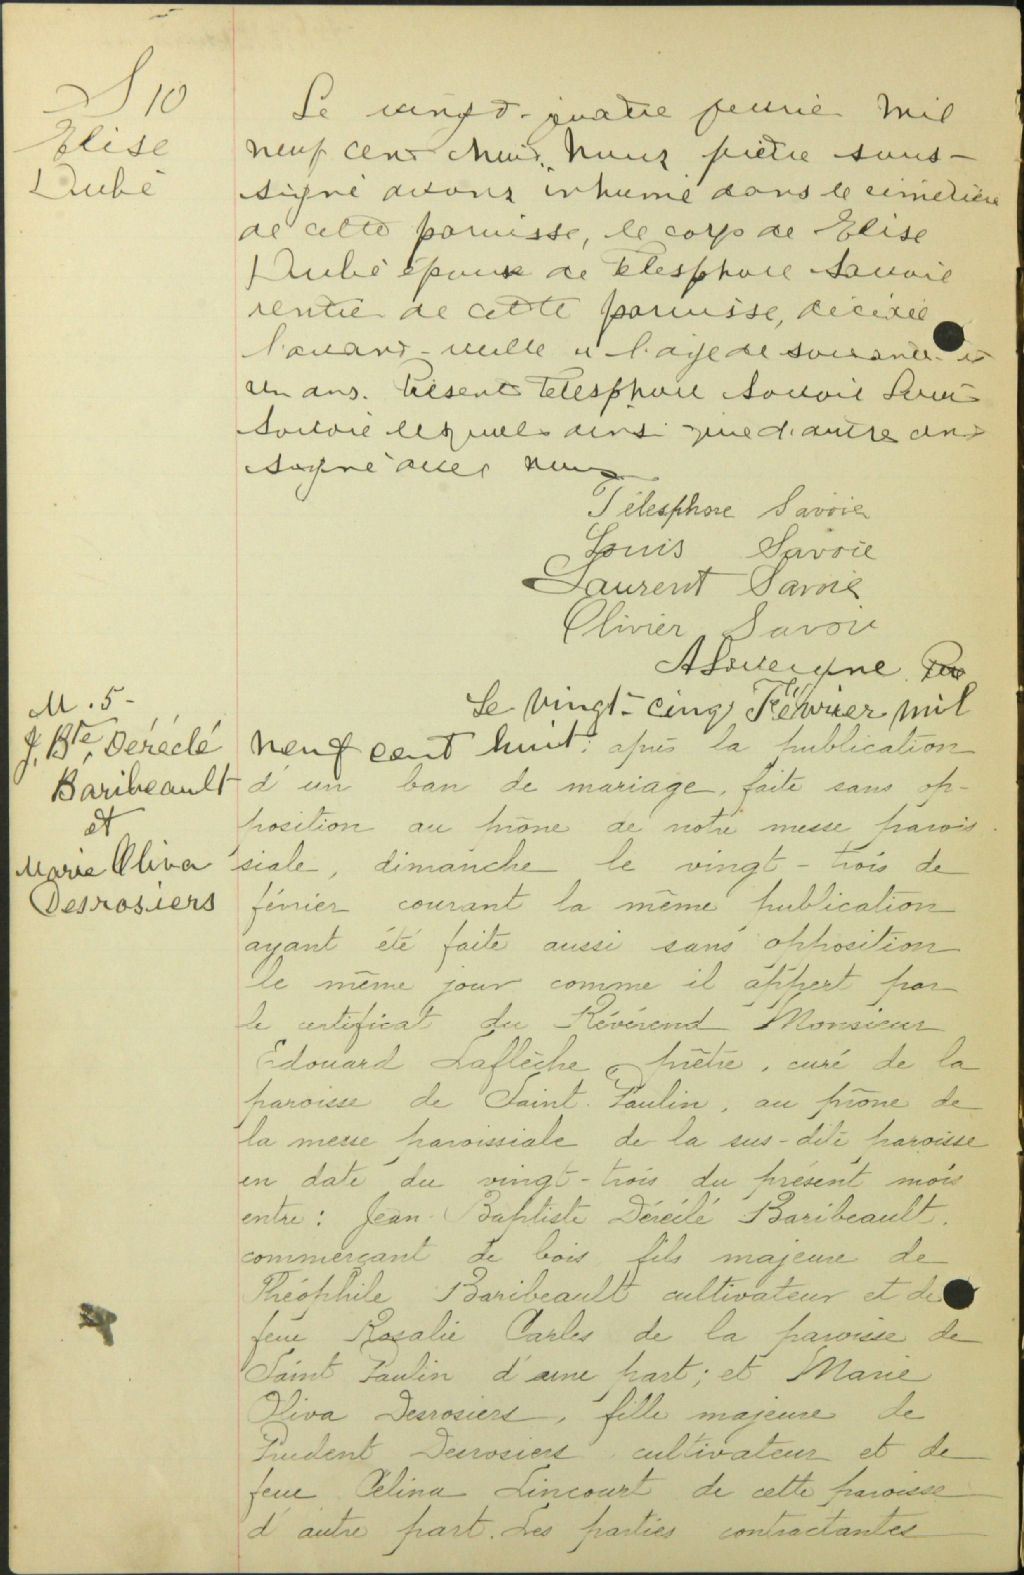 S 10
Elise
Dubé
Le vingt-quatre fevrier mil
neuf cent huit. Nous prêtre sous-
signé avons inhumé dans le cimetière
de cette paroisse, le corps de Elise
Dubé épouse de Telesphore Savoie
rentier de cette paroisse, décédée
l'avant-veille a l'age de soixante et
un ans. Présent Telesphore Savoie Louis
Savoie lesquels ainsi que d'autre ont
signé avec nous
Télesphore Savoie
Louis Savoie
Laurent Savoie
Olivier Savoie
Ptr
M. 5-
J. Bte, Déréclé
Baribeault
et
Marie Oliva
Desrosiers
Le vingt-cinq Février mil
neuf cent huit: après la publication
d'un ban de mariage, faite sans op-
position au prône de notre messe parois
siale, dimanche le vingt-trois de
février courant la même publication
ayant été faite aussi sans opposition
le même jour comme il appert par
le certificat du Révérend Monsieur
Edouard Laflèche prêtre, curé de la
paroisse de Saint Paulin, au prône de
la messe paroissiale de la sus-dite paroisse
en date du vingt-trois du présent mois
entre: Jean-Baptiste Baribeault.
commerçant de bois fils majeure de
Théophile Baribeault cultivateur et de
feue Rosalie Carles de la paroisse de
Saint Paulin d'une part; et Marie
Oliva Desrosiers, fille majeure de
Prudent Desrosiers cultivateur et de
feue Célina Lincourt de cette paroisse
d'autre part. Les parties contractantes